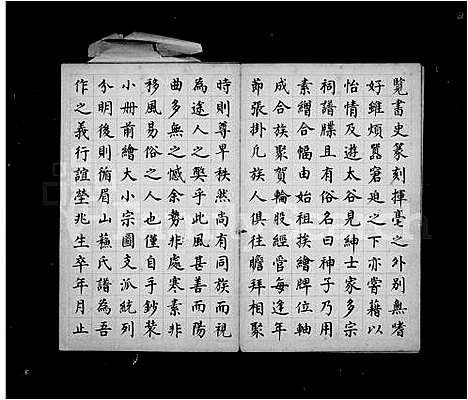 覽書史篆刻揮毫之外別無嗜
好雖煩囂窘迫之下亦嘗藉以
怡情及遊太谷見紳士家多宗
祠譜牒且有俗名曰神子乃用
素繒合幅由始祖挨繪牌位軸
成合族聚賀輪股經營每逢年
節張掛凡族人俱往瞻拜相聚
時則尊卑秩然尚有同族而視
為途人之獘乎此風甚善而陽
曲多無之憾余勢非處寒素非
移風易俗之人也僅自手鈔裝
小冊前繪大小宗圖支派統列
分明後則循眉山蘇氏譜為吾
作之義行誼塋兆生卒年月止